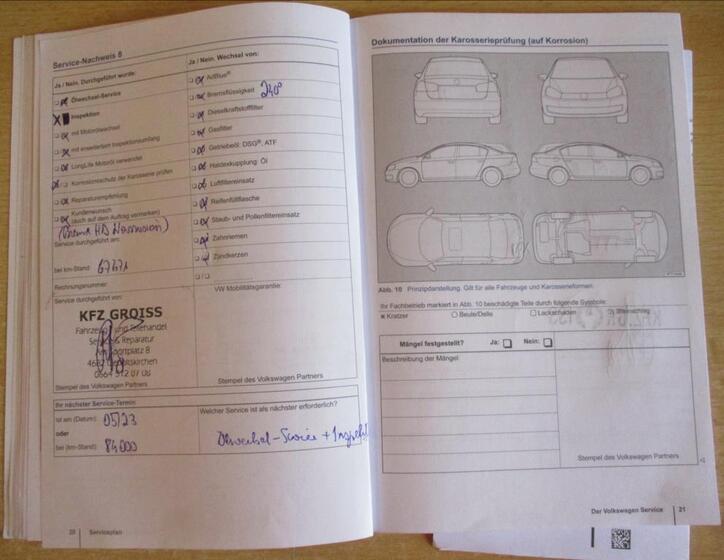 Service-Nachweis 8
Ja / Nein. Durchgeführt wurde:
Ölwechsel-Service
Inspektion
mit Motorölwechsel
mit erweitertem Inspektionsumfang
LongLife Motoröl verwendet
Korrosionsschutz der Karosserie prüfen
Reparaturempfehlung
Kundenwunsch
(auch auf dem Auftrag vermerken)
Service durchgeführt am:
bei km-Stand:
Rechnungsnummer:
Service durchgeführt von:
KFZ GROISS
Fahrzeug und Teilehandel
Reparatur
portplatz 8
Stempel des Volkswagen Partners
Ja / Nein. Wechsel von:
AdBlue®
Bremsflüssigkeit 240°
Dieselkraftstofffilter
Gasfilter
Getriebeöl: DSG®, ATF
Haldexkupplung Öl
Luftfiltereinsatz
Reifenfüllflasche
Staub- und Pollenfiltereinsatz
Zahnriemen
Zündkerzen
/
VW Mobilitätsgarantie:
Stempel des Volkswagen Partners
Ihr nächster Service-Termin
ist am (Datum): 05/23
oder
bei (km-Stand): 84000
Welcher Service ist als nächster erforderlich?
Ölwechsel-Service + Inspekt
20 Serviceplan
Dokumentation der Karosserieprüfung (auf Korrosion)
Abb. 10 Prinzipdarstellung. Gilt für alle Fahrzeuge und Karosserieformen.
Ihr Fachbetrieb markiert in Abb. 10 beschädigte Teile durch folgende Symbole:
Kratzer Beule/Delle Lackschaden Steinschlag
Mängel festgestellt? Ja: Nein:
Beschreibung der Mängel:
Stempel des Volkswagen Partners
Der Volkswagen Service 21